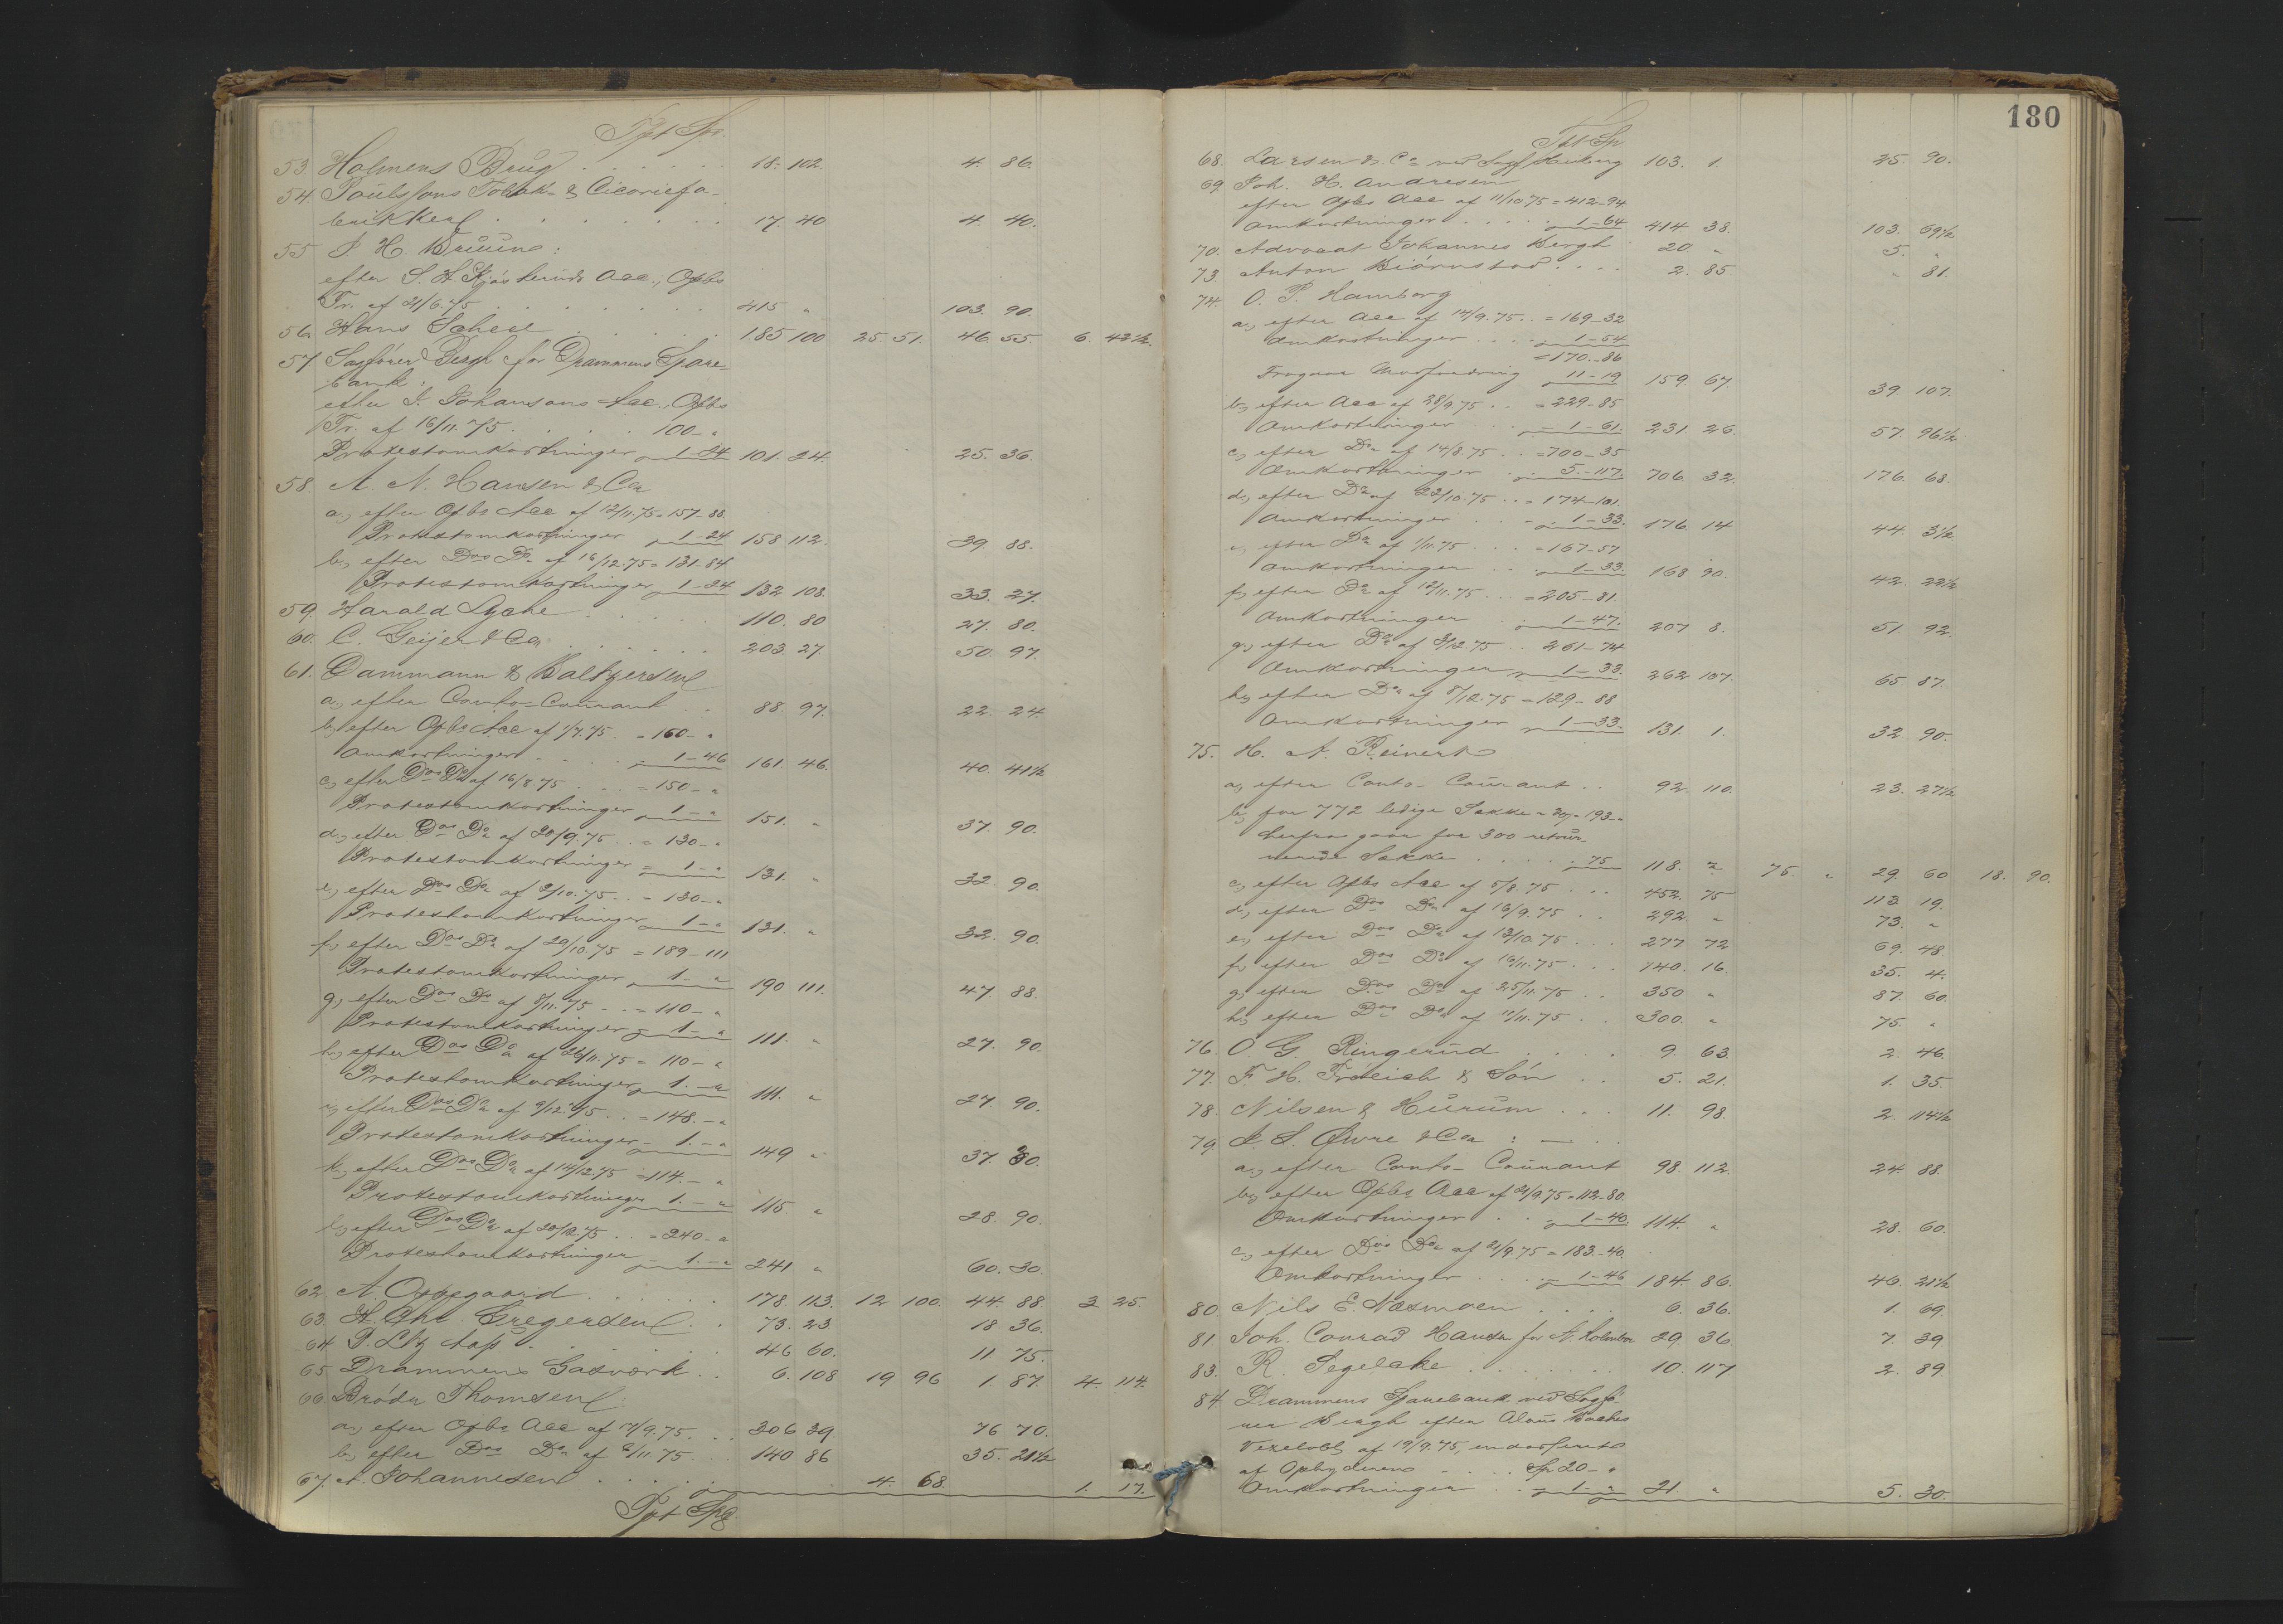 Tpt Spr.
53 Holmens Brug . . . . . 18. 102. 4. 86.
54. Paulssons Tobak- & Cicoriefa-
brikker . . . . . . . 17. 40 4. 40.
55 P H. Bruun:
efter S. H. Acc., Opbs
Tr. af 21/6 75 . . . . . . 415 " 103. 90.
56. Hans Scheel . . . . . 185 100 25. 51. 46. 55 6. 42½.
57 Sagfører Bergh for Drammens Spare-
bank:
efter J. Johansons Acc., Opbs
Tr. af 16/11. 75 . . . . 100 - "
Protestomkostninger 1-24 101. 24. 25. 36.
58. A. N. Hansen & Co
a, efter Opbs Acc af 12/11.75 = 157-88.
Protestomkostninger 1-24 158 112. 39. 88.
b, efter Dos Do af 16/12.75 = 131-84
Protestomkostninger 1-24 132 108. 33. 27.
59. Harald Lyche . . . . . 110. 80 27. 80.
60. C. Geijer & Co . . . . . 203. 27. 50. 97.
61. Dammann & Baltzersen
a, efter Conto-Courant . . 88. 97. 22. 24.
b, efter Opbs Acc af 1/7.75 . = 160- "
Omkostninger . . . . 1-46 161. 46. 40. 41½
c, efter Dos Do af 16/8.75 . . . = 150- "
Protestomkostninger 1- " 151. " 37. 90.
d, efter Dos Do af 20/9.75 . . = 130- "
Protestomkostninger = 1- " 131. " 32. 90.
e, efter Dos Do af 2/10.75 . . = 130- "
Protestomkostninger 1- " 131. " 32. 90.
f, efter Dos Do af 29/10.75 = 189-111
Protestomkostninger 1- " 190 111. 47. 88.
g, efter Dos Do af 8/11.75 . . = 110- "
Protestomkostninger = 1- " 111. " 27. 90.
h, efter Dos Do af 26/11.75 = 110- "
Protestomkostninger 1.- " 111. " 27. 90.
i, efter Dos Do af 9/12.75 . . = 148.- "
Protestomkostninger = 1.- " 149 " 37. 30.
k, efter Dos Do af 14/12.75 = 114.- "
Protestomkostninger 1.- " 115. " 28. 90.
l, efter Dos Do af 20/12.75 . . = 240- "
Protestomkostninger = 1.- " 241 " 60. 30.
62. A. Oppegaard . . . . . . 178. 113. 12 100. 44. 88. 3 25.
63. H. Chr. Gregersen . . 73. 23 18. 36.
64 P. Ltz Aas . . . . . . 46 60. 11. 75.
65 Drammens Gasværk . . 6. 108 19 96 1. 87. 4. 114.
66. Brødr Thomsen:
a, efter Opbs Acc af 17/9.75 . . . 306 39 76 70.
b, efter Dos Do af 2/11.75 . . . 140 86 35. 21½
67. A. Johannesen . . . . . . 4. 68. 1. 17.
Tpt Spd.
180
Tpt Sp
68. Larsen & Co ved Sagf Heiberg 103. 1. 25. 90.
69 Joh. H. Andresen
efter Opbs Acc af 11/10 75 = 412-94
Omkostninger . . . . 1-64 414 38. 103. 69½
70. Advocat Johannes Bergh 20 " 5. "
73 Anton Bjørnstad . . . . 2. 85. " 81.
74. O. P. Hamborg
a, efter Acc af 14/9.75 . . = 169-32
Omkostninger . . . . 1-54
= 170.-86
Fragaar Modfordring 11-19 159. 67. 39. 107.
b, efter Acc af 28/9.75 . . = 229-85
Omkostninger . . . 1-61. 231. 26. 57. 96½
c, efter Do af 14/8 75 . . = 700-35
Omkostninger . . 5.-117. 706. 32. 176. 68.
d, efter Do af 22/10.75 . . = 174-101.
Omkostninger . . . 1-33. 176 14 44. 3½
e, efter Do af 1/11.75 . . . = 167-57
Omkostninger . . . 1-33. 168 90. 42. 22½
f, efter Do af 12/11.75 . . . = 205-81.
Omkostninger . . 1-47. 207 8. 51. 92.
g, efter Do af 3/12.75 . . 261-74
Omkostninger 1-33. 262 107. 65. 87.
h, efter Do af 8/12.75 = 129-88
Omkostninger 1-33. 131. 1. 32. 90.
75. H. A. Reinert
a, efter Conto-Courant . . 92. 110. 23. 27½
b, for 772 ledige Sække a 30 = 193- "
herfra gaar for 300 retur-
nerede Sække . . . . . 75 118. " 75. " 29. 60 18. 90.
c, efter Opbs Acc af 5/8.75 . . . 452. 75 113. 19.
d, efter Dos Do af 16/9.75 . . 292. " 73. "
e, efter Dos Do af 13/10.75 . . . 277 72 69. 48.
f, efter Dos Do af 16/11.75 . . . 140. 16. 35. 4.
g, efter Dos Do af 25/11.75 . . 350 " 87. 60.
h, efter Dos Do af 11/11.75 . . 300. " 75. "
76. O. G. Ringerud . . . . 9. 63. 2. 46.
77. F. H. Frølich & Søn . . 5. 21. 1. 35.
78. Nilsen & Hurum . . . 11. 98. 2. 114½
79. J. S. Øvre & Co :
a, efter Conto-Courant 98. 112. 24. 88.
b, efter Opbs Acc af 21/9.75 = 112-80.
Omkostninger . . 1-40. 114. " 28. 60.
c, efter Dos Do af 21/9.75 = 183.-40.
Omkostninger . . . 1-46 184. 86. 46. 21½
80 Nils E. Næsmoen . . . . 6. 36. 1. 69.
81. Joh. Conrad Hansen for A. 29. 36. 7. 39
83. R. Segelcke . . . . . . 10. 117 2. 89
84. Drammens Sparebank ved Sagfø-
rer Bergh efter
Vexelobl, af 19/9.75, endosseret
af Opbyderen . . . . Sp 20- "
Omkostninger . . 1- " 21 " 5. 30.